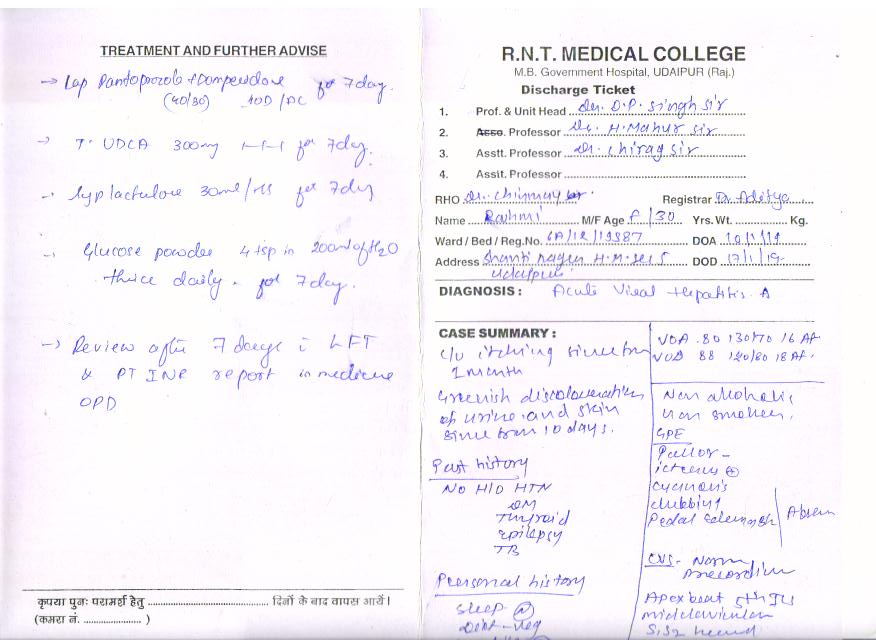 TREATMENT AND FURTHER ADVISE
→ Cap Pantoprozole + Dompendore for 7 day.
(40/30) 1OD/AC
→ T. UDCA 300mg 1-1-1 for 7 day.
→ Syp lactulose 30ml/HS for 7 day
→ Glucose powder 4 tsp in 200ml of H2O
thrice daily. for 7 day.
→ Review after 7 days c LFT
& PT INR report in medicine
OPD
कृपया पुनः परामर्श हेतु ........ दिनों के बाद वापस आयें।
(कमरा नं. ........ )
R.N.T. MEDICAL COLLEGE
M.B. Government Hospital, UDAIPUR (Raj.)
Discharge Ticket
1. Prof. & Unit Head Dr. D.P. Singh Sir
2. Asso. Professor Dr. H. Mahur Sir
3. Asstt. Professor Dr. Chirag Sir
4. Assit. Professor
RHO Dr. Chinmay Registrar Dr. Aditya
Name Rashmi M/F Age F/30 Yrs. Wt. Kg.
Ward / Bed / Reg.No. 6A/12/19387 DOA 10/1/19
Address Shanti nagar H.M. Sec 5 DOD 17/1/19
Udaipur
DIAGNOSIS : Acute Viral Hepatitis A
CASE SUMMARY :
c/o itching since
1 month
Greenish discolouration
of urine and skin
since 10 days.
Past history
NO H/O HTN
DM
Thyroid
epilepsy
TB
Personal history
sleep
Diet - veg
VOA 80 130/70 16 Af
VOD 88 120/80 18 Af.
Non alcoholic
non smoker.
GPE
Pallor -
icterus ⊕
cyanosis
clubbing
Pedal edema
Absent
CVS - Norm
precordium
Apex beat 5th IC
midclavicular
S1S2 heard